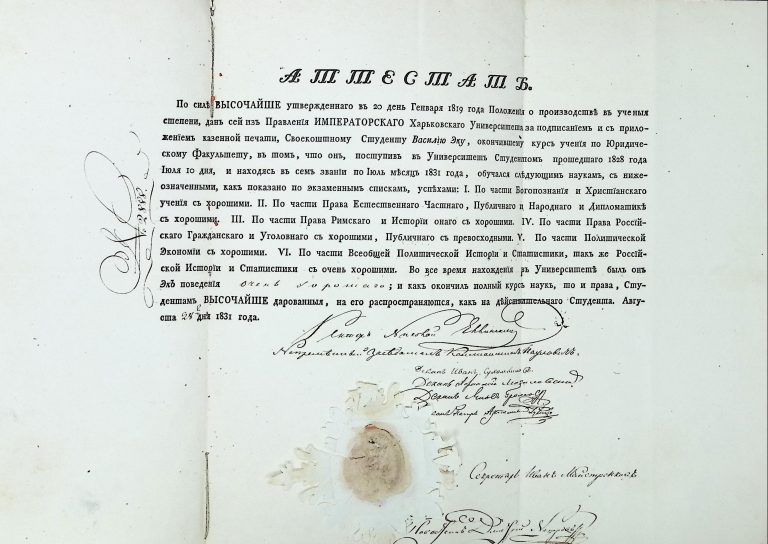 АТТЕСТАТЪ.
По силѣ ВЫСОЧАЙШЕ утвержденнаго въ 20 день Генваря 1819 года Положенія о производствѣ въ ученыя
степени, данъ сей изъ Правленія ИМПЕРАТОРСКАГО Харьковскаго Университета за подписаніемъ и съ прило-
женіемъ казенной печати, Своекоштному Студенту Василію Эку, окончившему курсъ ученія по Юридиче-
скому Факультету, въ томъ, что онъ, поступивъ въ Университетъ Студентомъ прошедшаго 1828 года
Іюля 10 дня, и находясь въ семъ званіи по Іюль мѣсяцъ 1831 года, обучался слѣдующимъ наукамъ, съ ниже-
означенными, какъ показано по экзаменнымъ спискамъ, успѣхами: I. По части Богопознанія и Христіанскаго
ученія съ хорошими. II. По части Права Естественнаго Частнаго, Публичнаго и Народнаго и Дипломатикѣ
съ хорошими. III. По части Права Римскаго и Исторіи онаго съ хорошими. IV. По части Права Россій-
скаго Гражданскаго и Уголовнаго съ хорошими, Публичнаго съ превосходными. V. По части Политической
Экономіи съ хорошими. VI. По части Всеобщей Политической Исторіи и Статистики, такъ же Россій-
ской Исторіи и Статистики съ очень хорошими. Во все время нахожденія въ Университетѣ былъ онъ
Экъ поведенія очень хорошаго; и какъ окончилъ полный курсъ наукъ, то и права, Сту-
дентамъ ВЫСОЧАЙШЕ дарованныя, на его распространяются, какъ на дѣйствительнаго Студента. Авгу-
ста 28 дня 1831 года.
Ректоръ
Непремѣнный Засѣдатель
Деканъ Иванъ
Деканъ
Деканъ
Секретарь Иванъ